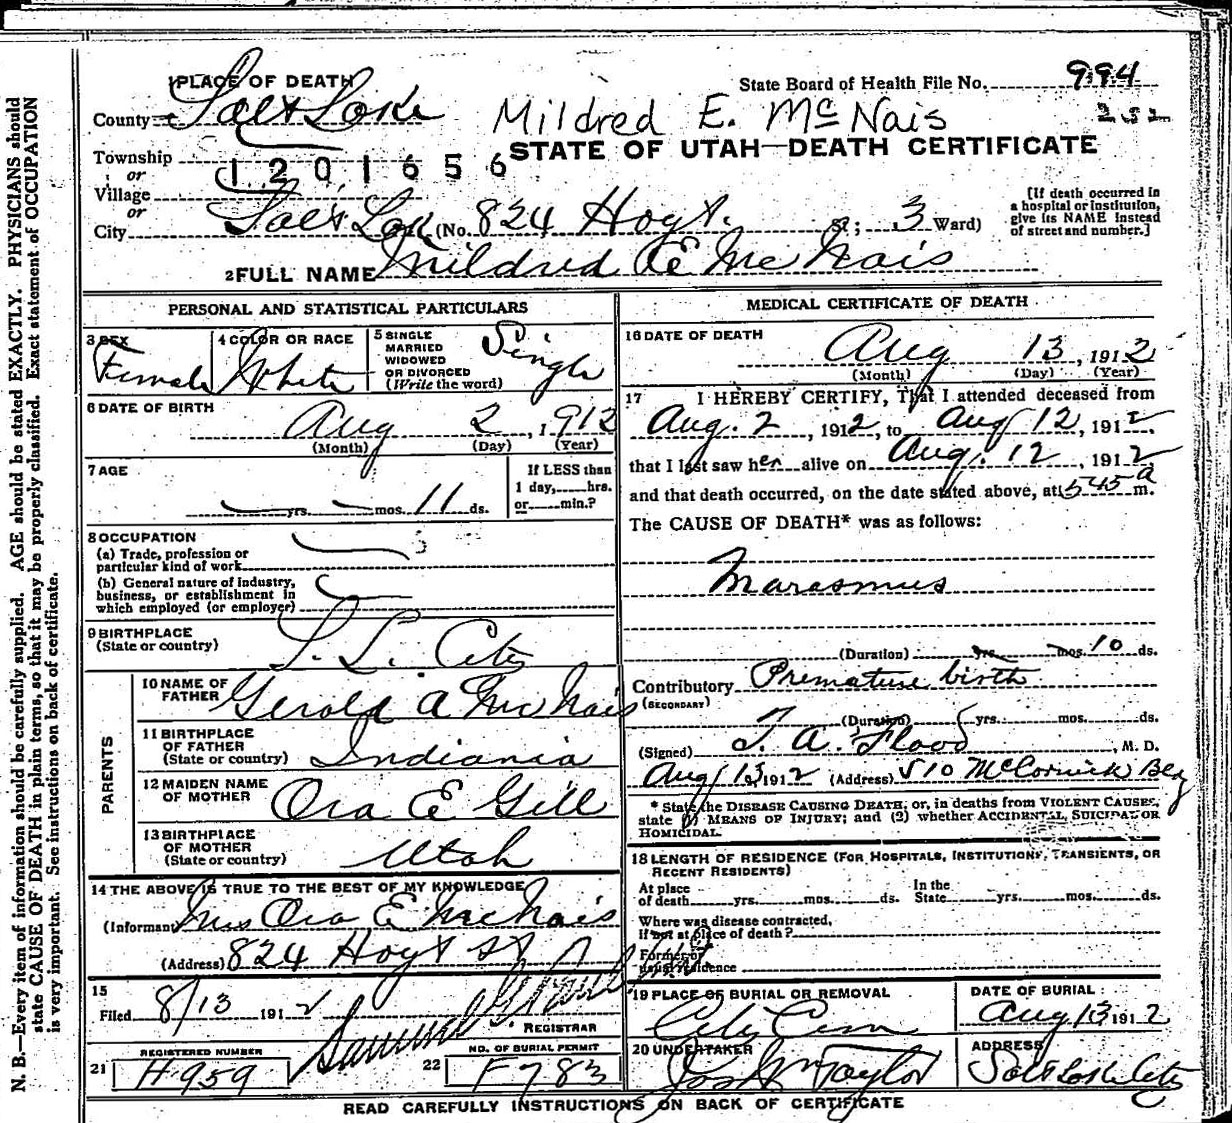 1 PLACE OF DEATH
State Board of Health File No. 994
County Salt Lake
Mildred E. McNais
232
Township
or
1201656
STATE OF UTAH—DEATH CERTIFICATE
Village
or
City Salt Lake (No. 824 Hoyt. St.; 3 Ward)
[If death occurred in a hospital or institution, give its NAME instead of street and number.]
2 FULL NAME Mildred E McNais
PERSONAL AND STATISTICAL PARTICULARS
3 SEX Female
4 COLOR OR RACE White
5 SINGLE MARRIED WIDOWED OR DIVORCED (Write the word) Single
6 DATE OF BIRTH
Aug 2, 1912
(Month) (Day) (Year)
7 AGE
yrs. mos. 11 ds.
If LESS than 1 day, hrs. or min.?
8 OCCUPATION
(a) Trade, profession or particular kind of work
(b) General nature of industry, business, or establishment in which employed (or employer)
9 BIRTHPLACE
(State or country) S. L. City
PARENTS
10 NAME OF FATHER Gerold A McNais
11 BIRTHPLACE OF FATHER (State or country) Indiania
12 MAIDEN NAME OF MOTHER Ora E Gill
13 BIRTHPLACE OF MOTHER (State or country) Utah
14 THE ABOVE IS TRUE TO THE BEST OF MY KNOWLEDGE
(Informant Mrs Ora E McNais
(Address) 824 Hoyt St
15
Filed 8/13 1912
REGISTRAR
REGISTERED NUMBER
21 H959
NO. OF BURIAL PERMIT
22 F783
MEDICAL CERTIFICATE OF DEATH
16 DATE OF DEATH
Aug 13, 1912
(Month) (Day) (Year)
17 I HEREBY CERTIFY, That I attended deceased from
Aug. 2, 1912, to Aug 12, 1912.
that I last saw her alive on Aug. 12, 1912
and that death occurred, on the date stated above, at 545 a m.
The CAUSE OF DEATH* was as follows:
Marasmus
(Duration) yrs. mos. 10 ds.
Contributory Premature birth
(SECONDARY)
(Duration) yrs. mos. ds.
(Signed) T. A. Flood, M. D.
Aug 13, 1912 (Address) 510 McCornick Bldg
* State the DISEASE CAUSING DEATH, or, in deaths from VIOLENT CAUSES, state (1) MEANS OF INJURY; and (2) whether ACCIDENTAL, SUICIDAL OR HOMICIDAL.
18 LENGTH OF RESIDENCE (FOR HOSPITALS, INSTITUTIONS, TRANSIENTS, OR RECENT RESIDENTS)
At place of death yrs. mos. ds. In the State yrs. mos. ds.
Where was disease contracted, if not at place of death?
Former or usual residence
19 PLACE OF BURIAL OR REMOVAL
City Cem
DATE OF BURIAL
Aug 13 1912
20 UNDERTAKER
Jos Wm Taylor
ADDRESS
Salt Lake City
READ CAREFULLY INSTRUCTIONS ON BACK OF CERTIFICATE
N. B.—Every item of information should be carefully supplied. AGE should be stated EXACTLY. PHYSICIANS should
state CAUSE OF DEATH in plain terms, so that it may be properly classified. Exact statement of OCCUPATION
is very important. See instructions on back of certificate.